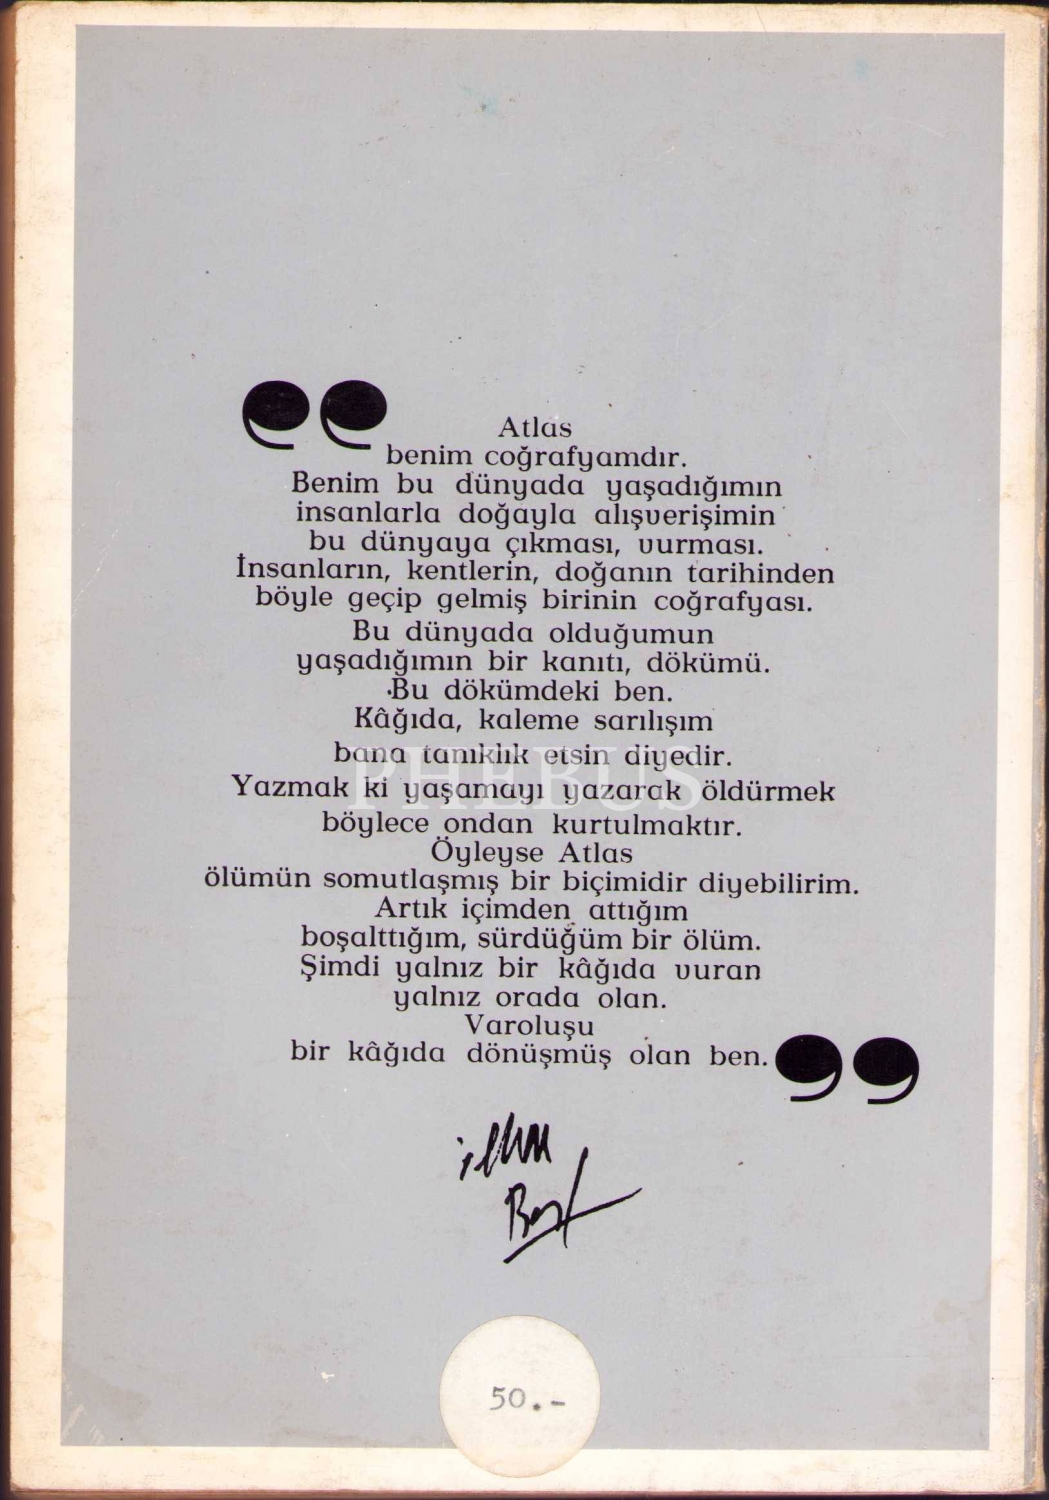 Atlas
benim coğrafyamdır.
Benim bu dünyada yaşadığımın
insanlarla doğayla alışverişimin
bu dünyaya çıkması, vurması.
İnsanların, kentlerin, doğanın tarihinden
böyle geçip gelmiş birinin coğrafyası.
Bu dünyada olduğumun
yaşadığımın bir kanıtı, dökümü.
Bu dökümdeki ben.
Kâğıda, kaleme sarılışım
bana tanıklık etsin diyedir.
PHEBUS
Yazmak ki yaşamayı yazarak öldürmek
böylece ondan kurtulmaktır.
Öyleyse Atlas
ölümün somutlaşmış bir biçimidir diyebilirim.
Artık içimden attığım
boşalttığım, sürdüğüm bir ölüm.
Şimdi yalnız bir kâğıda vuran
yalnız orada olan.
Varoluşu
bir kâğıda dönüşmüş olan ben.
ilhan
Berk
50.-